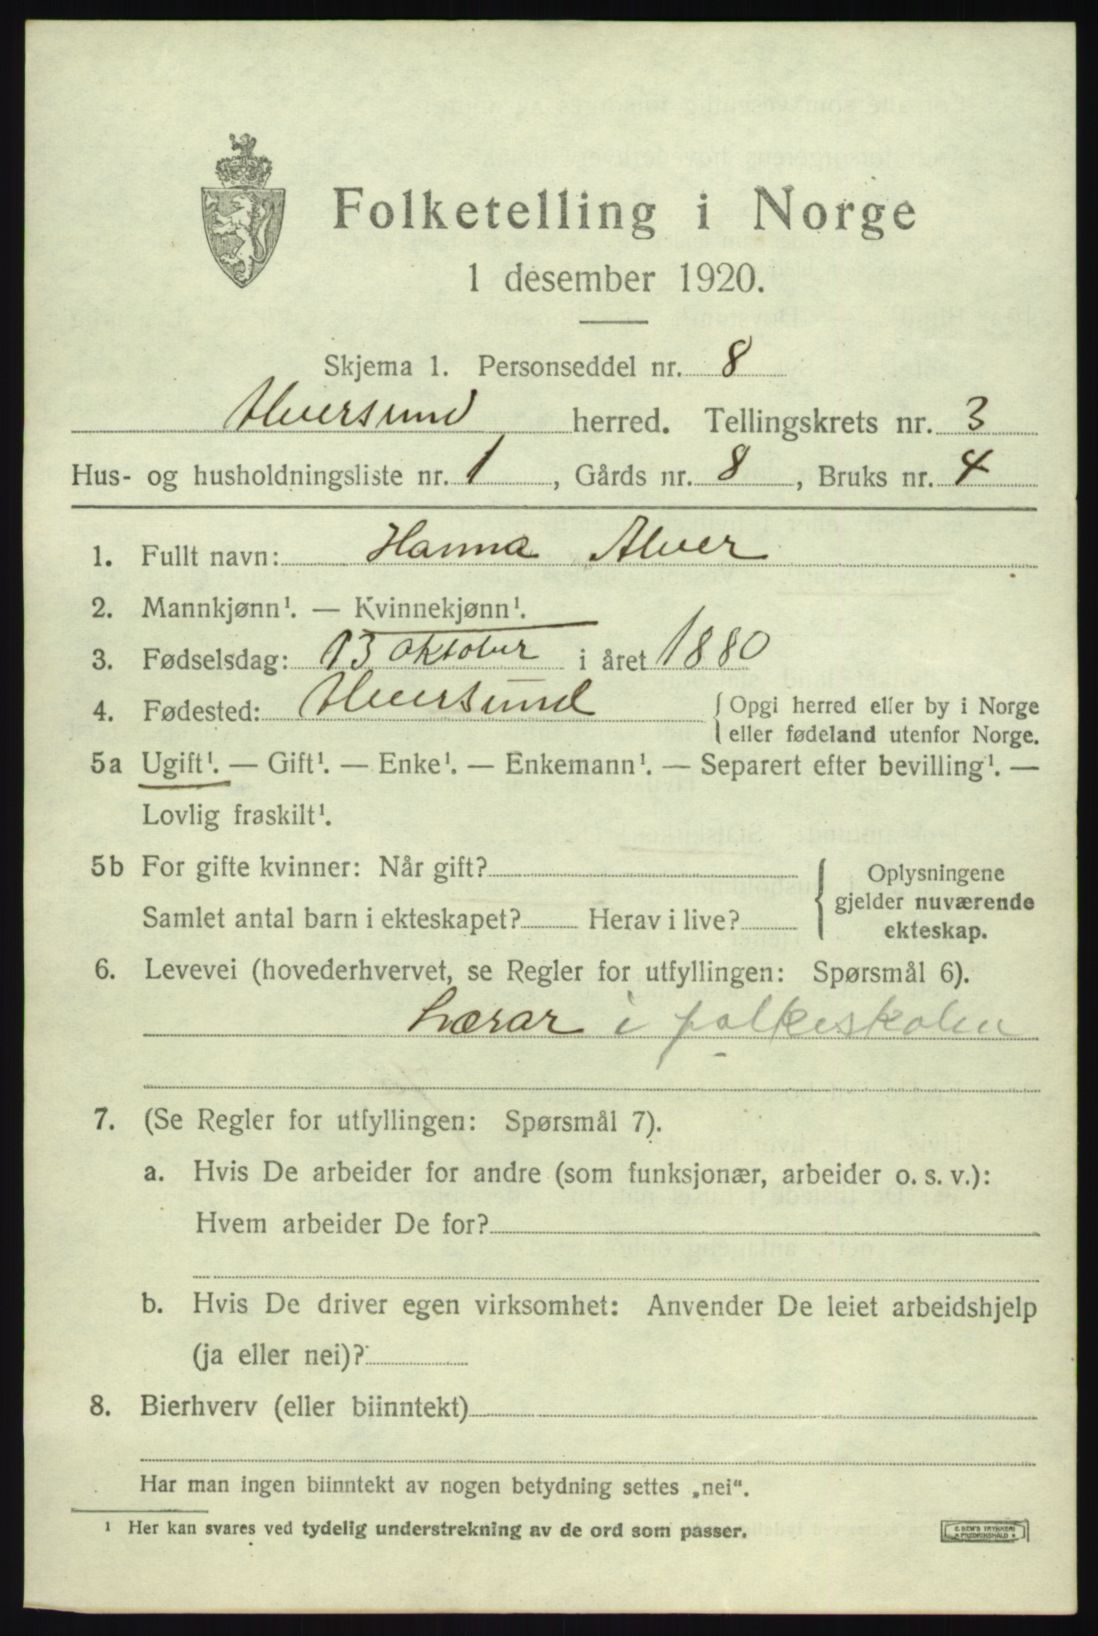 Folketelling i Norge
1 desember 1920.
Skjema 1. Personseddel nr. 8
Alversund herred. Tellingskrets nr. 3
Hus- og husholdningsliste nr. 1, Gårds nr. 8, Bruks nr. 4
1. Fullt navn: Hanna Alver
2. Mannkjønn¹. — Kvinnekjønn¹.
3. Fødselsdag: 13 oktober i året 1880
4. Fødested: Alversund { Opgi herred eller by i Norge
eller fødeland utenfor Norge.
5a Ugift¹. — Gift¹. — Enke¹. — Enkemann¹. — Separert efter bevilling¹. —
Lovlig fraskilt¹.
5b For gifte kvinner: Når gift?
Samlet antal barn i ekteskapet? Herav i live?
Oplysningene
gjelder nuværende
ekteskap.
6. Levevei (hovederhvervet, se Regler for utfyllingen: Spørsmål 6).
Lærar i folkeskolen
7. (Se Regler for utfyllingen: Spørsmål 7).
a. Hvis De arbeider for andre (som funksjonær, arbeider o. s. v.):
Hvem arbeider De for?
b. Hvis De driver egen virksomhet: Anvender De leiet arbeidshjelp
(ja eller nei)?
8. Bierhverv (eller biinntekt)
Har man ingen biinntekt av nogen betydning settes „nei“.
¹ Her kan svares ved tydelig understrekning av de ord som passer.